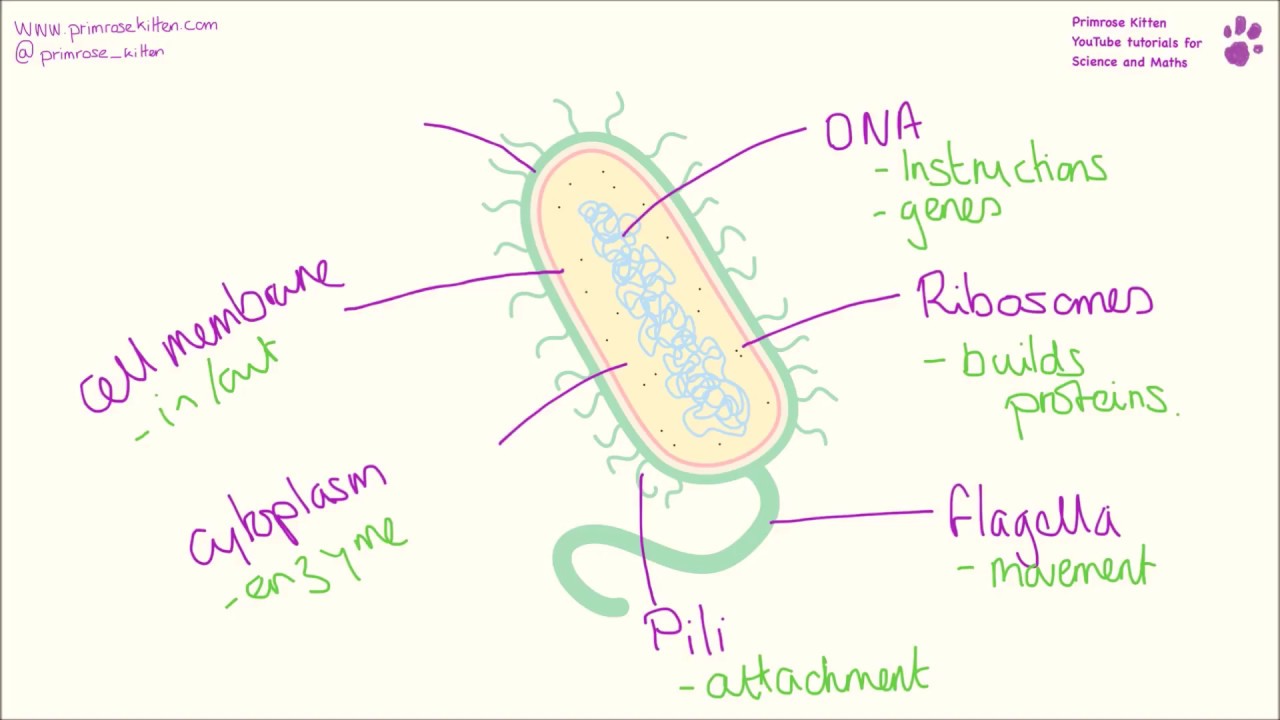 www.primrosekitten.com
@primrose_kitten
Primrose Kitten
YouTube tutorials for
Science and Maths
DNA
- Instructions
- genes
cell membrane
- in/out
Ribosomes
- builds
proteins.
cytoplasm
- enzyme
flagella
- movement
Pili
- attachment